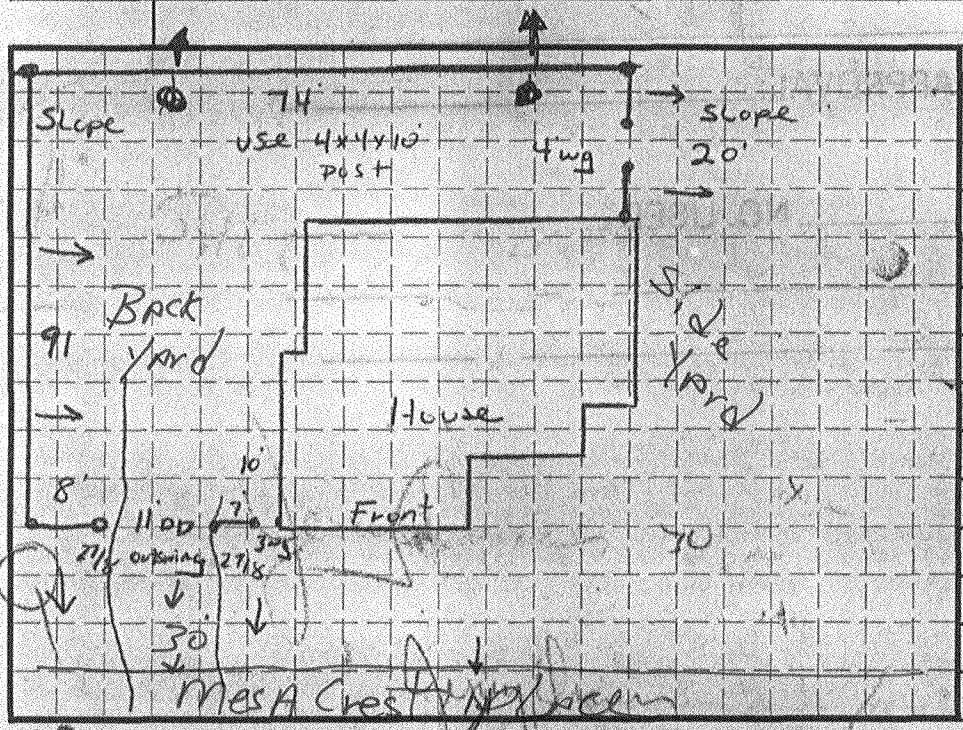 74'
Slope
use 4x4x10'
post
4'wg
Slope
20'
Back
Yard
91
Side
Yard
House
10'
8'
11'DD
7'
Front
27/8
outswing
27/8
3wg
30'
Mesa Crest